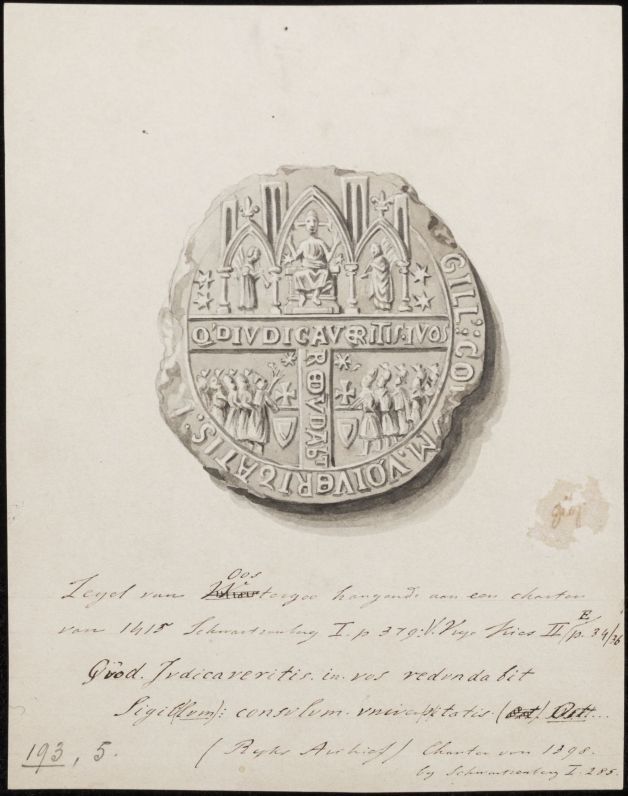 GILL : CO
M. VŪIVERITATIS. I
Q'DIVDICAVERITIS. I VOS
RƏDVDABT
Oos
Zegel van Westergoo hangende aan een charter
van 1415 Schwartzenberg I. p 379. II/E p. 34/36
Quod. Judicaveritis. in. vos redundabit
Sigil(lum): consulum. universitatis. (Oest) Oest....
193, 5. (Ryks Archief) Charter van 1398.
by Schwartzenberg I. 285.